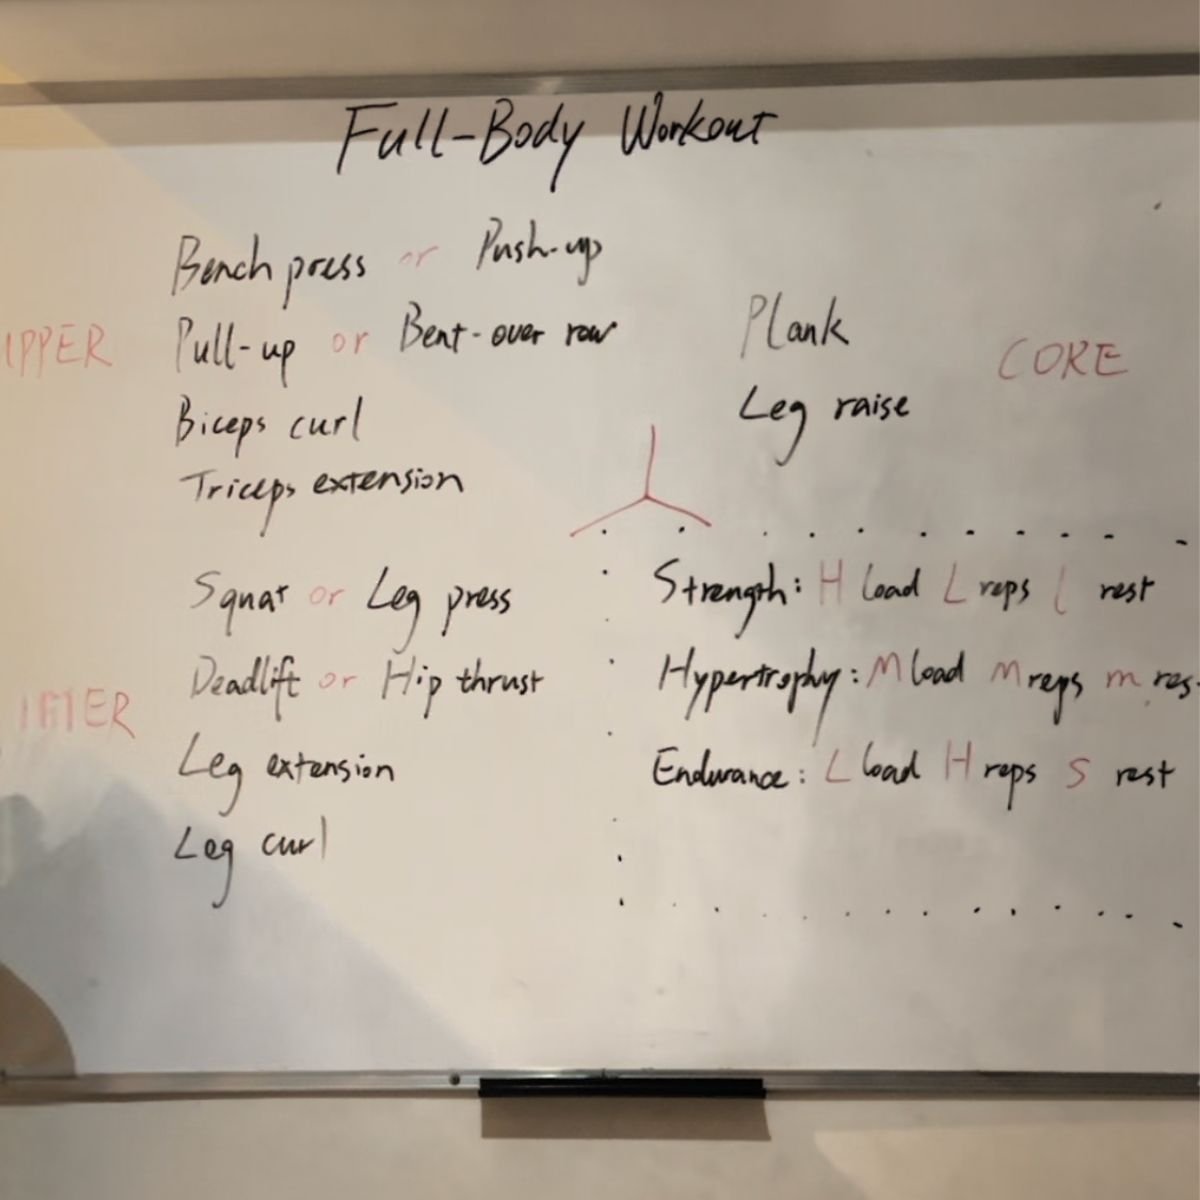 Full-Body Workout
Bench press or Push-up
UPPER Pull-up or Bent-over row
Biceps curl
Triceps extension
Plank
CORE
Leg raise
Squat or Leg press
Deadlift or Hip thrust
Leg extension
Leg curl
Strength: H load L reps L rest
Hypertrophy: M load M reps m res
Endurance: L load H reps S rest